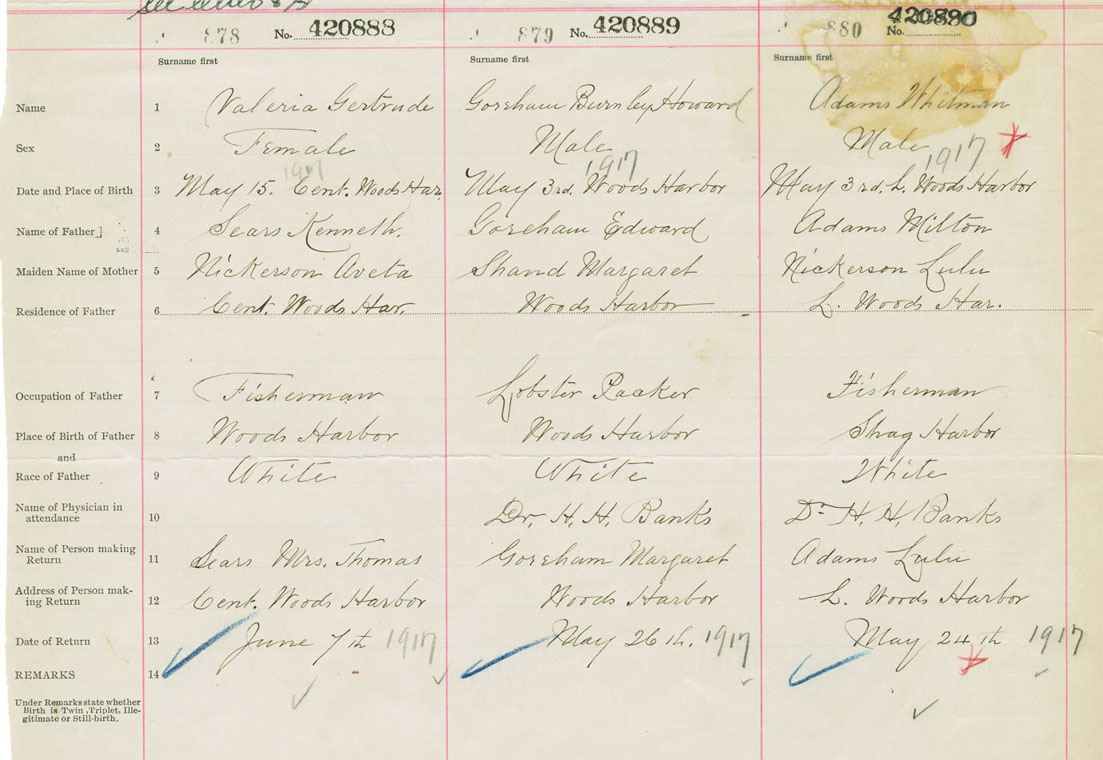 878 No. 420888 879 No. 420889 880 No. 420890
Surname first Surname first Surname first
Name 1 Valeria Gertrude Goreham Burnley Howard Adams Whitman
Sex 2 Female Male Male
1917 1917 1917
Date and Place of Birth 3 May 15. Cent. Woods Har. May 3rd. Woods Harbor May 3rd. L. Woods Harbor
Name of Father] 4 Sears Kenneth. Goreham Edward Adams Milton
Maiden Name of Mother 5 Nickerson Aveta Shand Margaret Nickerson Lulu
Residence of Father 6 Cent. Woods Har. Woods Harbor L. Woods Har.
Occupation of Father 7 Fisherman Lobster Packer Fisherman
Place of Birth of Father 8 Woods Harbor Woods Harbor Shag Harbor
and
Race of Father 9 White White White
Name of Physician in
attendance 10 Dr. H. H. Banks Dr H. H. Banks
Name of Person making
Return 11 Sears Mrs. Thomas Goreham Margaret Adams Lulu
Address of Person mak-
ing Return 12 Cent. Woods Harbor Woods Harbor L. Woods Harbor
Date of Return 13 June 7th 1917 May 26th. 1917 May 24th 1917
REMARKS 14
Under Remarks state whether
Birth is Twin, Triplet, Ille-
gitimate or Still-birth.